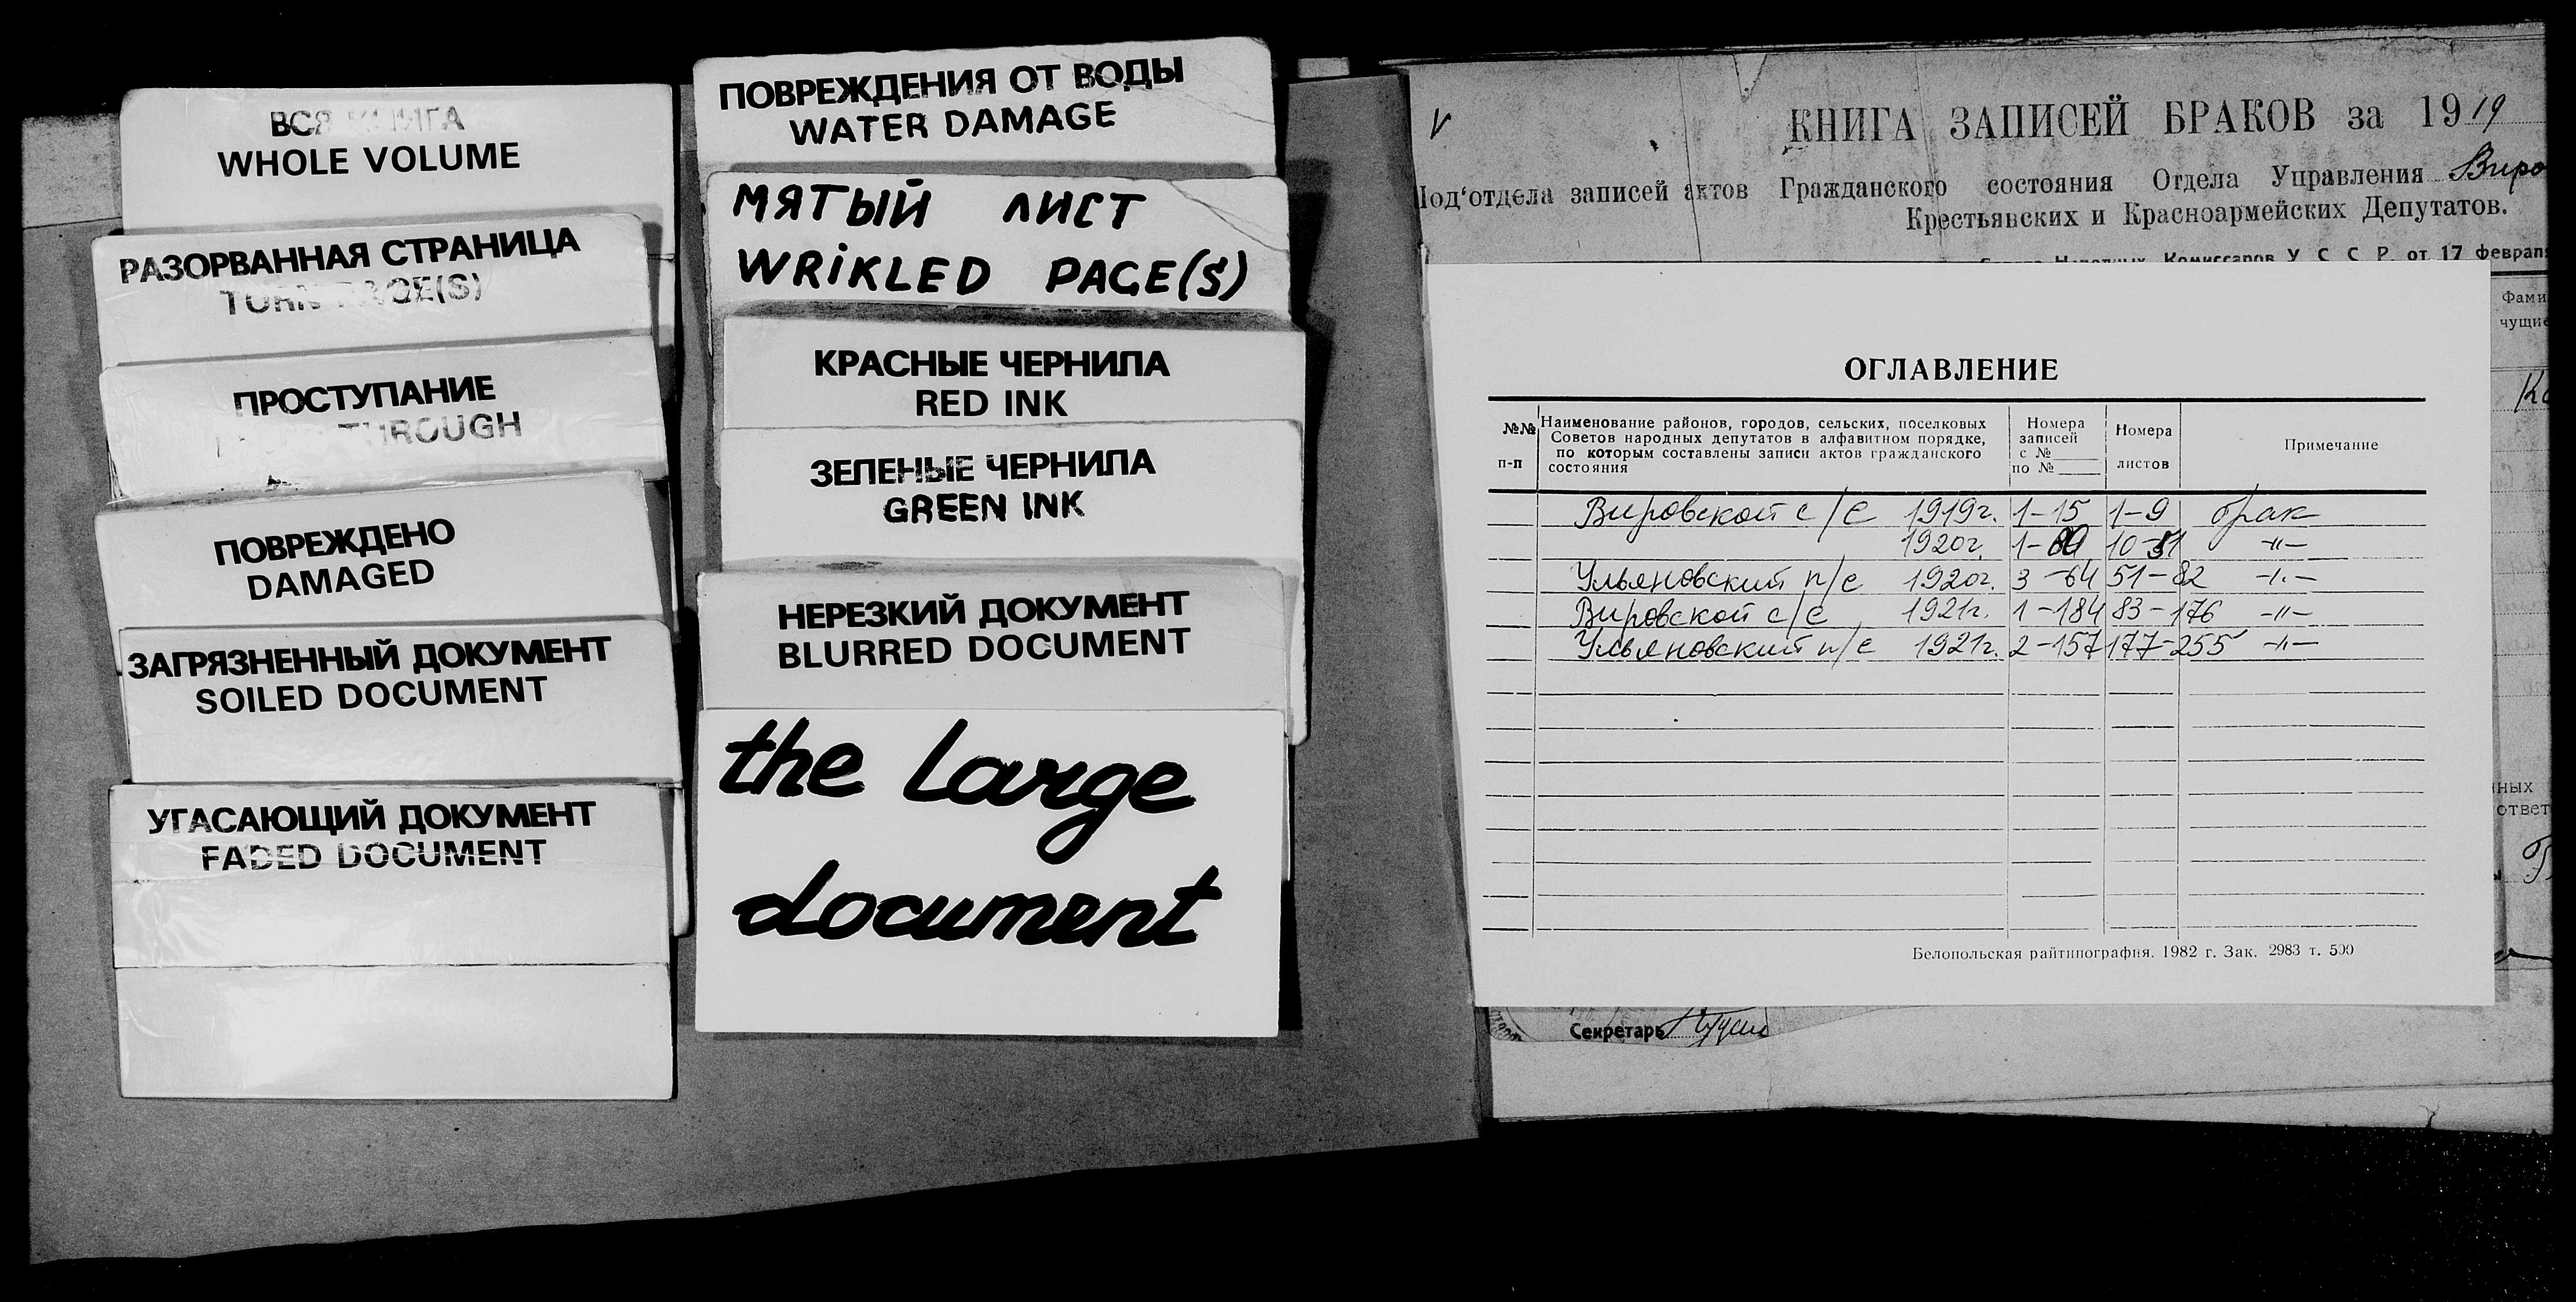 ВСЯ КНИГА
WHOLE VOLUME
РАЗОРВАННАЯ СТРАНИЦА
TORN PAGE(S)
ПРОСТУПАНИЕ
THROUGH
ПОВРЕЖДЕНО
DAMAGED
ЗАГРЯЗНЕННЫЙ ДОКУМЕНТ
SOILED DOCUMENT
УГАСАЮЩИЙ ДОКУМЕНТ
FADED DOCUMENT
ПОВРЕЖДЕНИЯ ОТ ВОДЫ
WATER DAMAGE
МЯТЫЙ ЛИСТ
WRiKLED PAGE(S)
КРАСНЫЕ ЧЕРНИЛА
RED INK
ЗЕЛЕНЫЕ ЧЕРНИЛА
GREEN INK
НЕРЕЗКИЙ ДОКУМЕНТ
BLURRED DOCUMENT
the large
document
V
КНИГА ЗАПИСЕЙ БРАКОВ за 1919
Под‘отдела записей актов Гражданского состояния Отдела Управления Виро
Крестьянских и Красноармейских Депутатов.
Комиссаров У. С. С. Р. от 17 феврал
Фами
чущие
ОГЛАВЛЕНИЕ
№№ п-п
Наименование районов, городов, сельских, поселковых
Советов народных депутатов в алфавитном порядке,
по которым составлены записи актов гражданского
состояния
Номера
записей
с №
по №
Номера
листов
Примечание
Вировской с/с 1919г. 1-15 1-9 брак
1920г. 1-80 10-51 -"-
Ульяновский п/с 1920г. 3-64 51-82 -"-
Вировской с/с 1921г. 1-184 83-176 -"-
Ульяновский п/с 1921г. 2-157 177-255 -"-
Белопольская райтипография. 1982 г. Зак. 2983 т. 500
нных
ответ
Секретарь